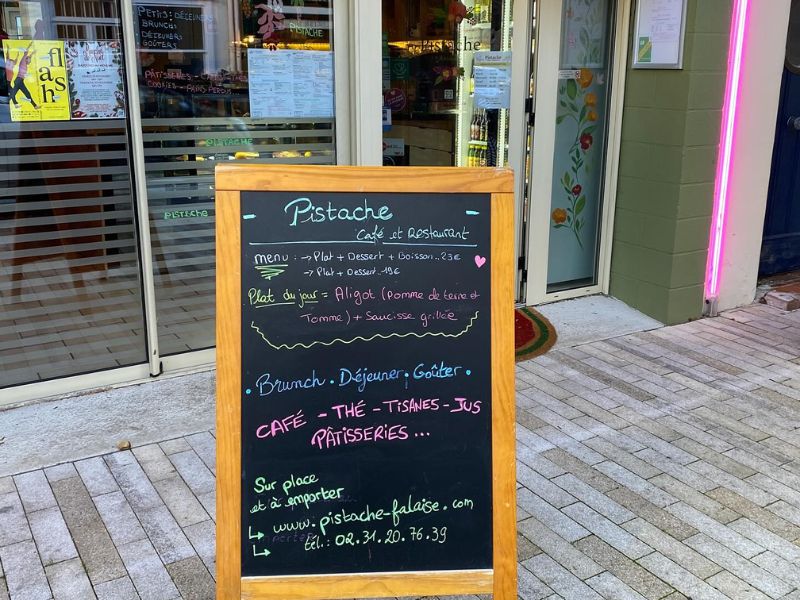 PETITS DÉJEUNERS
BRUNCHS
DÉJEUNERS
GOÛTERS
PISTACHE
Pistache
PISTACHE
PISTACHE
flash
Pistache
- Pistache -
Café et Restaurant
menu : → Plat + Dessert + Boisson .. 23€
→ Plat + Dessert . 19€
Plat du jour = Aligot (pomme de terre et
Tomme) + Saucisse grillée
. Brunch . Déjeuner . Goûter .
CAFÉ - THÉ - TISANES - JUS
PÂTISSERIES ...
Sur place
et à emporter
↳ www.pistache-falaise.com
↳ tél.: 02.31.20.76.39